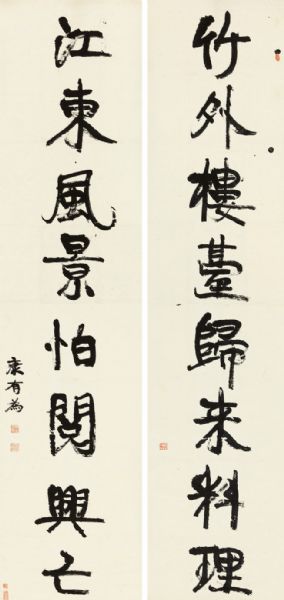 竹外樓臺歸來料理
江東風景怕閱興亡
康有為